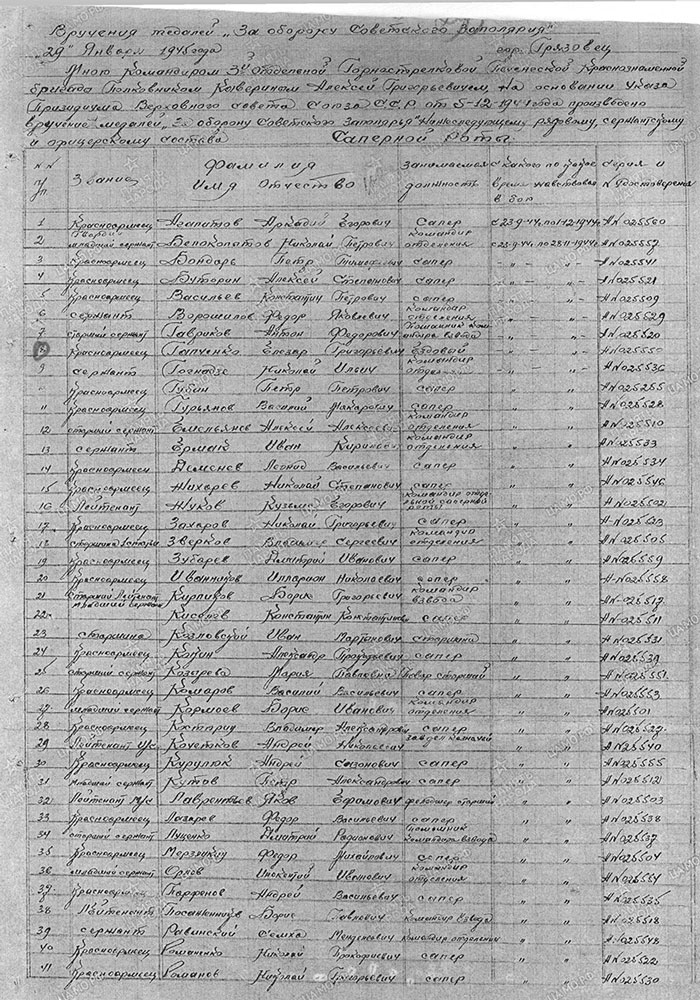 Вручения медалей „За оборону Советского Заполярья"
„29" Января 1945 года гор. Грязовец
Мною Командиром 3й Отдельной Горнострелковой Печенгской Краснознаменной
бригады Полковником Каверином Алексеем Григорьевичем, на основании Указа
Президиума Верховного Совета Союза С.С.Р. от 5-12-1944 года произведено
вручение медалей „За оборону Советского Заполярья" нижеследующему рядовому, сержантскому
и офицерскому составу Саперной Роты.
NN п/п Звание Фамилия Имя Отчество занимаемая должность с какого по какое время участвовал в бою серия и N удостоверения
1 Красноармеец Агапитов Аркадий Егорович сапер с 23-9-44г по 1-12-1944г АN 025560
2 Гвардии младший сержант Белокопатов Николай Петрович командир отделения АN 025557
3 Красноармеец Бондарь Петр сапер -"- -"- АN 025541
4 Красноармеец Буторин Алексей Степанович сапер -"- -"- АN 025521
5 Красноармеец Васильев Константин Петрович сапер -"- -"- АN 025509
6 сержант Ворошилов Федор Яковлевич командир отделения -"- -"- АN 025529
7 старший сержант Гавриков Антон Федорович помощник командира взвода -"- -"- АN 025520
8 Красноармеец Гапченко Елезар Григорьевич Ездовой -"- -"- АN 025550
9 сержант Николай Ильич командир отделения " " АN 025536
Красноармеец Губин Петр Петрович сапер " " АN 025255
11 Красноармеец Гурьянов Василий Макарович сапер " " АN 025528
12 старший сержант Емельянов Алексей Алексеевич командир отделения " " АN 025510
13 сержант Ермак Иван командир отделения " " АN 025533
14 Красноармеец Леонид Васильевич сапер " " АN 025534
15 Красноармеец Жихарев Николай Степанович сапер " " АN 025546
16 Лейтенант Жуков Кузьма Егорович командир отдельной саперной роты " " АN 025502
17 Красноармеец Захаров Николай Григорьевич сапер " " АN 025523
18 Зверков Владимир Сергеевич командир отделения " " АN 025505
19 Красноармеец Зубарев Дмитрий Иванович сапер " " АN 025559
20 Красноармеец Иванников Илларион Николаевич сапер " " АN 025558
21 Старший Лейтенант Кирпиков Борис Григорьевич командир взвода " " АN 025517
22 младший сержант Киселев Константин Константинович сапер " " АN 025511
23 старшина Козловский Иван Мартынович старшина " " АN 025531
24 Красноармеец Александр сапер " " АN 025539
25 старший сержант Козырева Мария Павловна Повар старший " " АN 025551
26 Красноармеец Комаров Василий Васильевич сапер " " АN 025553
27 младший сержант Борис Иванович командир отделения " " АN 025501
28 Красноармеец Владимир Александрович сапер " "
29 Лейтенант И/С Кочетков Андрей Николаевич зав. делопроизв. " " АN 025540
30 Красноармеец Курулюк Андрей сапер " " АN 025555
31 младший сержант Кутов Петр Александрович сапер " " АN 025512
32 Лейтенант М/С Лаврентьев Яков Ефимович фельдшер старший " " АN 025503
33 Красноармеец Лазарев Федор Васильевич сапер " " АN 025538
34 старший сержант Луценко Дмитрий Родионович помощник командира взвода " " АN 025537
35 Красноармеец Мерзликин Федор Михайлович сапер " " АN 025504
36 младший сержант Орлов Инокентий Иванович командир отделения " " АN 025554
37 Красноармеец Парфенов Андрей Васильевич сапер " " АN 025535
38 Лейтенант Посаженников Борис Павлович командир взвода " " АN 025518
39 сержант Равинский командир отделения " " АN 025548
40 Красноармеец Романенко Николай Прокофиевич сапер " " АN 025522
41 Красноармеец Романов Николай Григорьевич сапер " " АN 025530